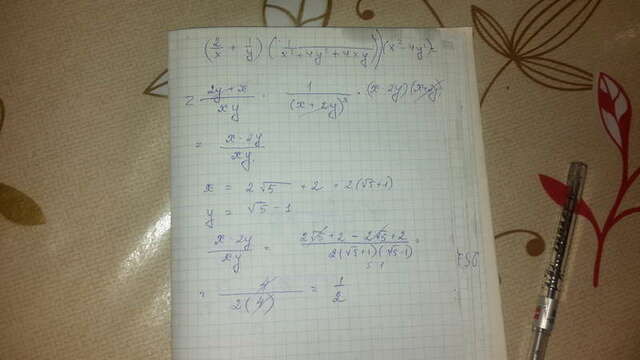 (2/x + 1/y) (1/(x² + 4y² + 4xy)) (x² - 4y²) =
= (2y + x)/(xy) · 1/(x + 2y)² · (x - 2y)(x + 2y)
= (x - 2y)/(xy)
x = 2√5 + 2 = 2(√5+1)
y = √5 - 1
(x - 2y)/(xy) = (2√5 + 2 - 2√5 + 2)/(2(√5+1)(√5-1)) =
5-1
= 4/(2(4)) = 1/2